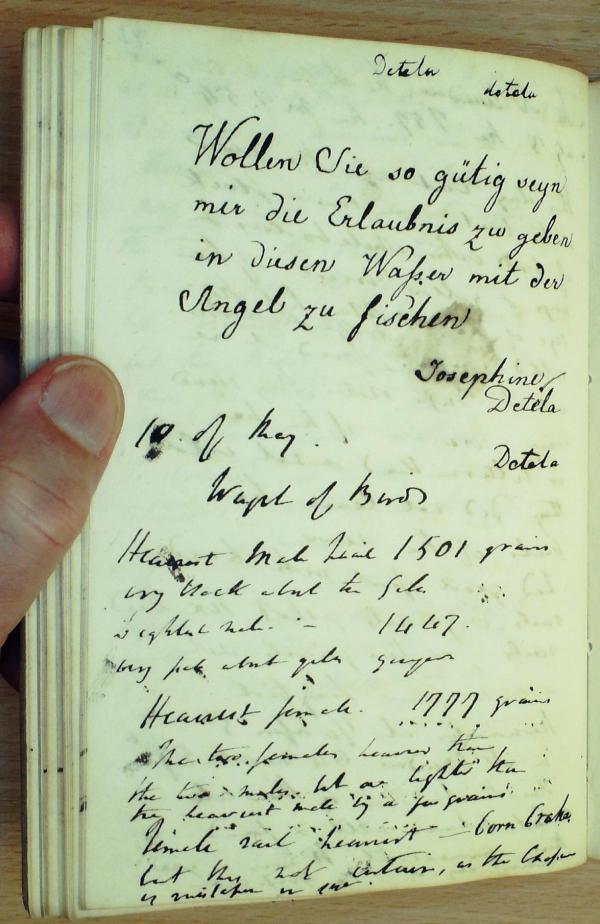 Detela
detela
Wollen Sie so gütig seyn
mir die Erlaubnis zu geben
in diesen Waßer mit der
Angel zu fischen
Josephine
Detela
Detela
10 of May.
of Birds
Heaviest Male 1501 grains
very black about the
lightest male - 1447.
very pale about
Heaviest female. 1777 grains
The two females heavier than
the two males. but one lighter than
the heaviest male by a few grains
female rail heaviest - Corn Crake,
but this not certain, as the
is mistaken in